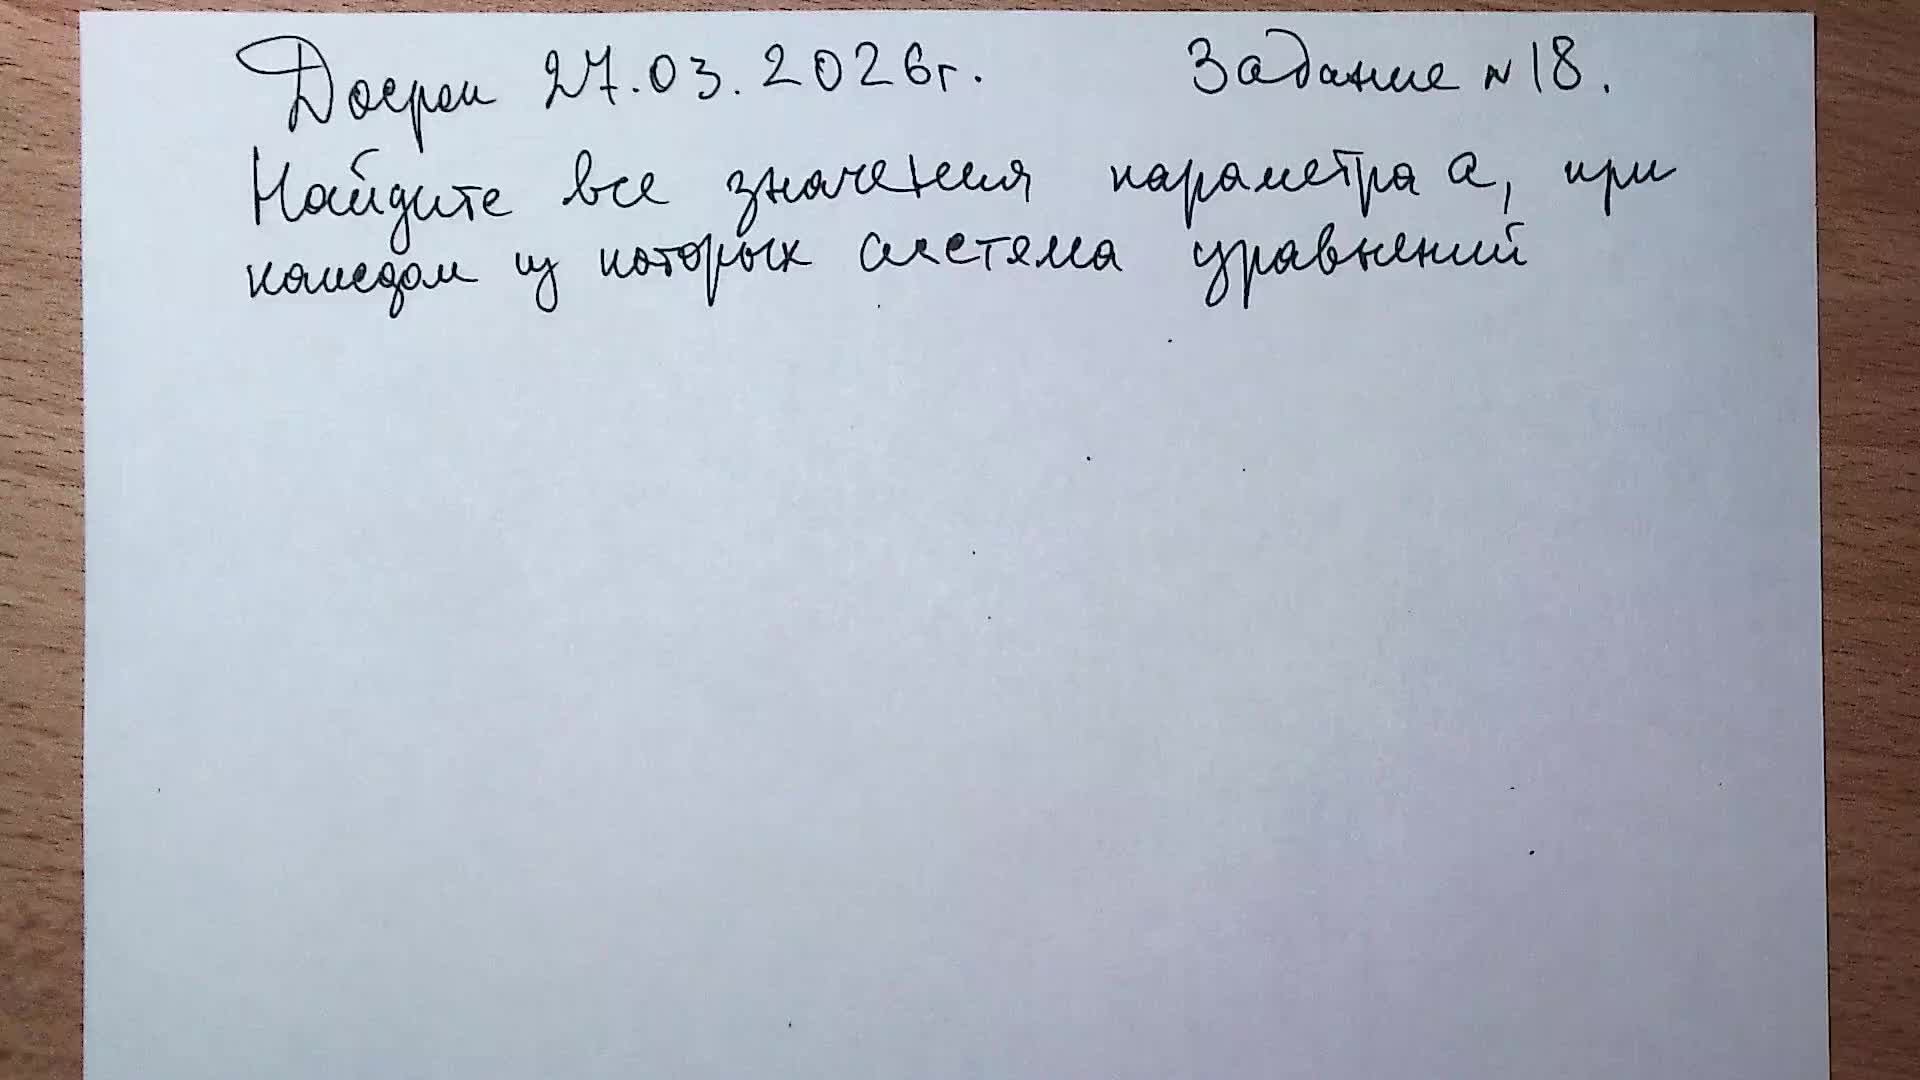 Досрок 27.03.2026г. Задание №18.
Найдите все значения параметра а, при
каждом из которых система уравнений